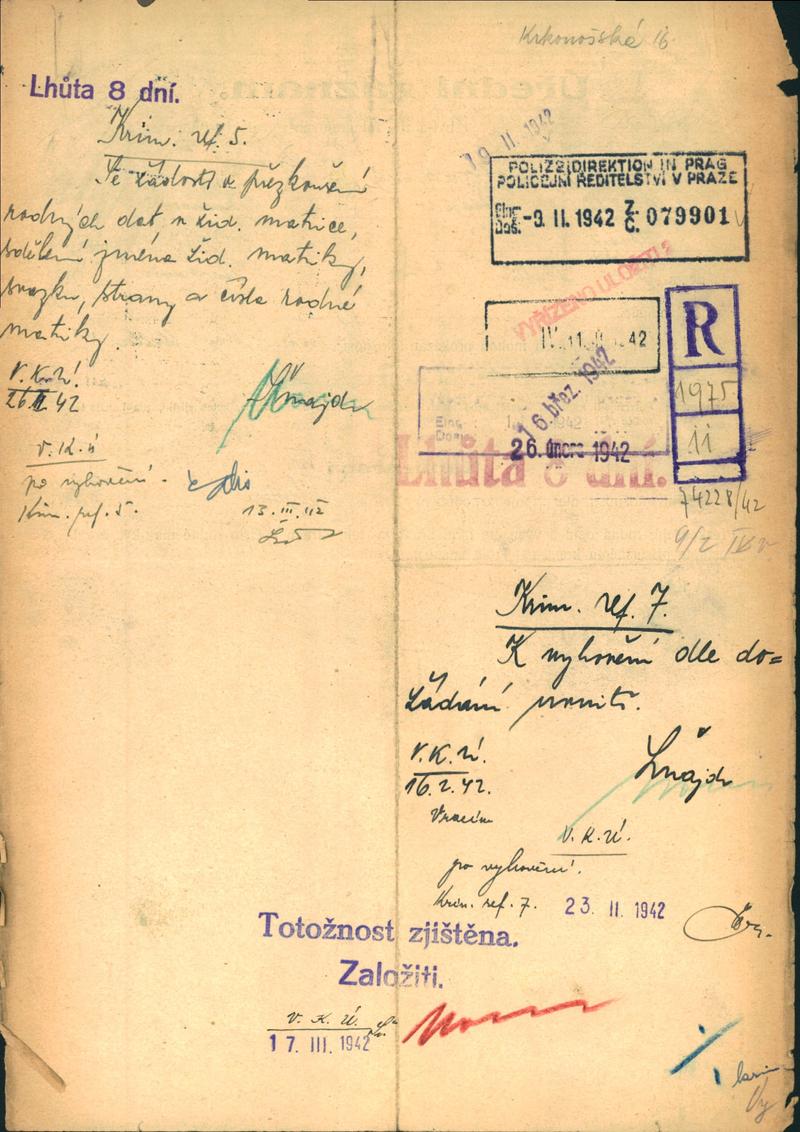 Krkonošská 16
Lhůta 8 dní.
Krim. ref. 5.
Se žádostí o přezkoušení
rodných dat, v žid. matrice,
sdělení jména žid. matriky,
svazku, strany a čísla rodné
matriky.
V. K. Ú.
26.II.42
V. K. Ú.
po vyhovění.
Krim. ref. 5.
13.III.42
19 II 1942
POLIZEIDIREKTION IN PRAG
POLICEJNÍ ŘEDITELSTVÍ V PRAZE
Eing. Doš. -9. II. 1942 Z. Č. 079901
VYŘÍZENO ULOŽITI
R
1975
ii
16. břez. 1942
26. února 1942
Lhůta 8 dní.
74228/42
9/2
Krim. ref. 7.
K vyhovění dle do=
žádání
V. K. Ú.
16.2.42.
Vracím
V. K. Ú.
po vyhovění.
Krim. ref. 7. 23. II. 1942
Totožnost zjištěna.
Založiti.
V. K. Ú.
17. III. 1942